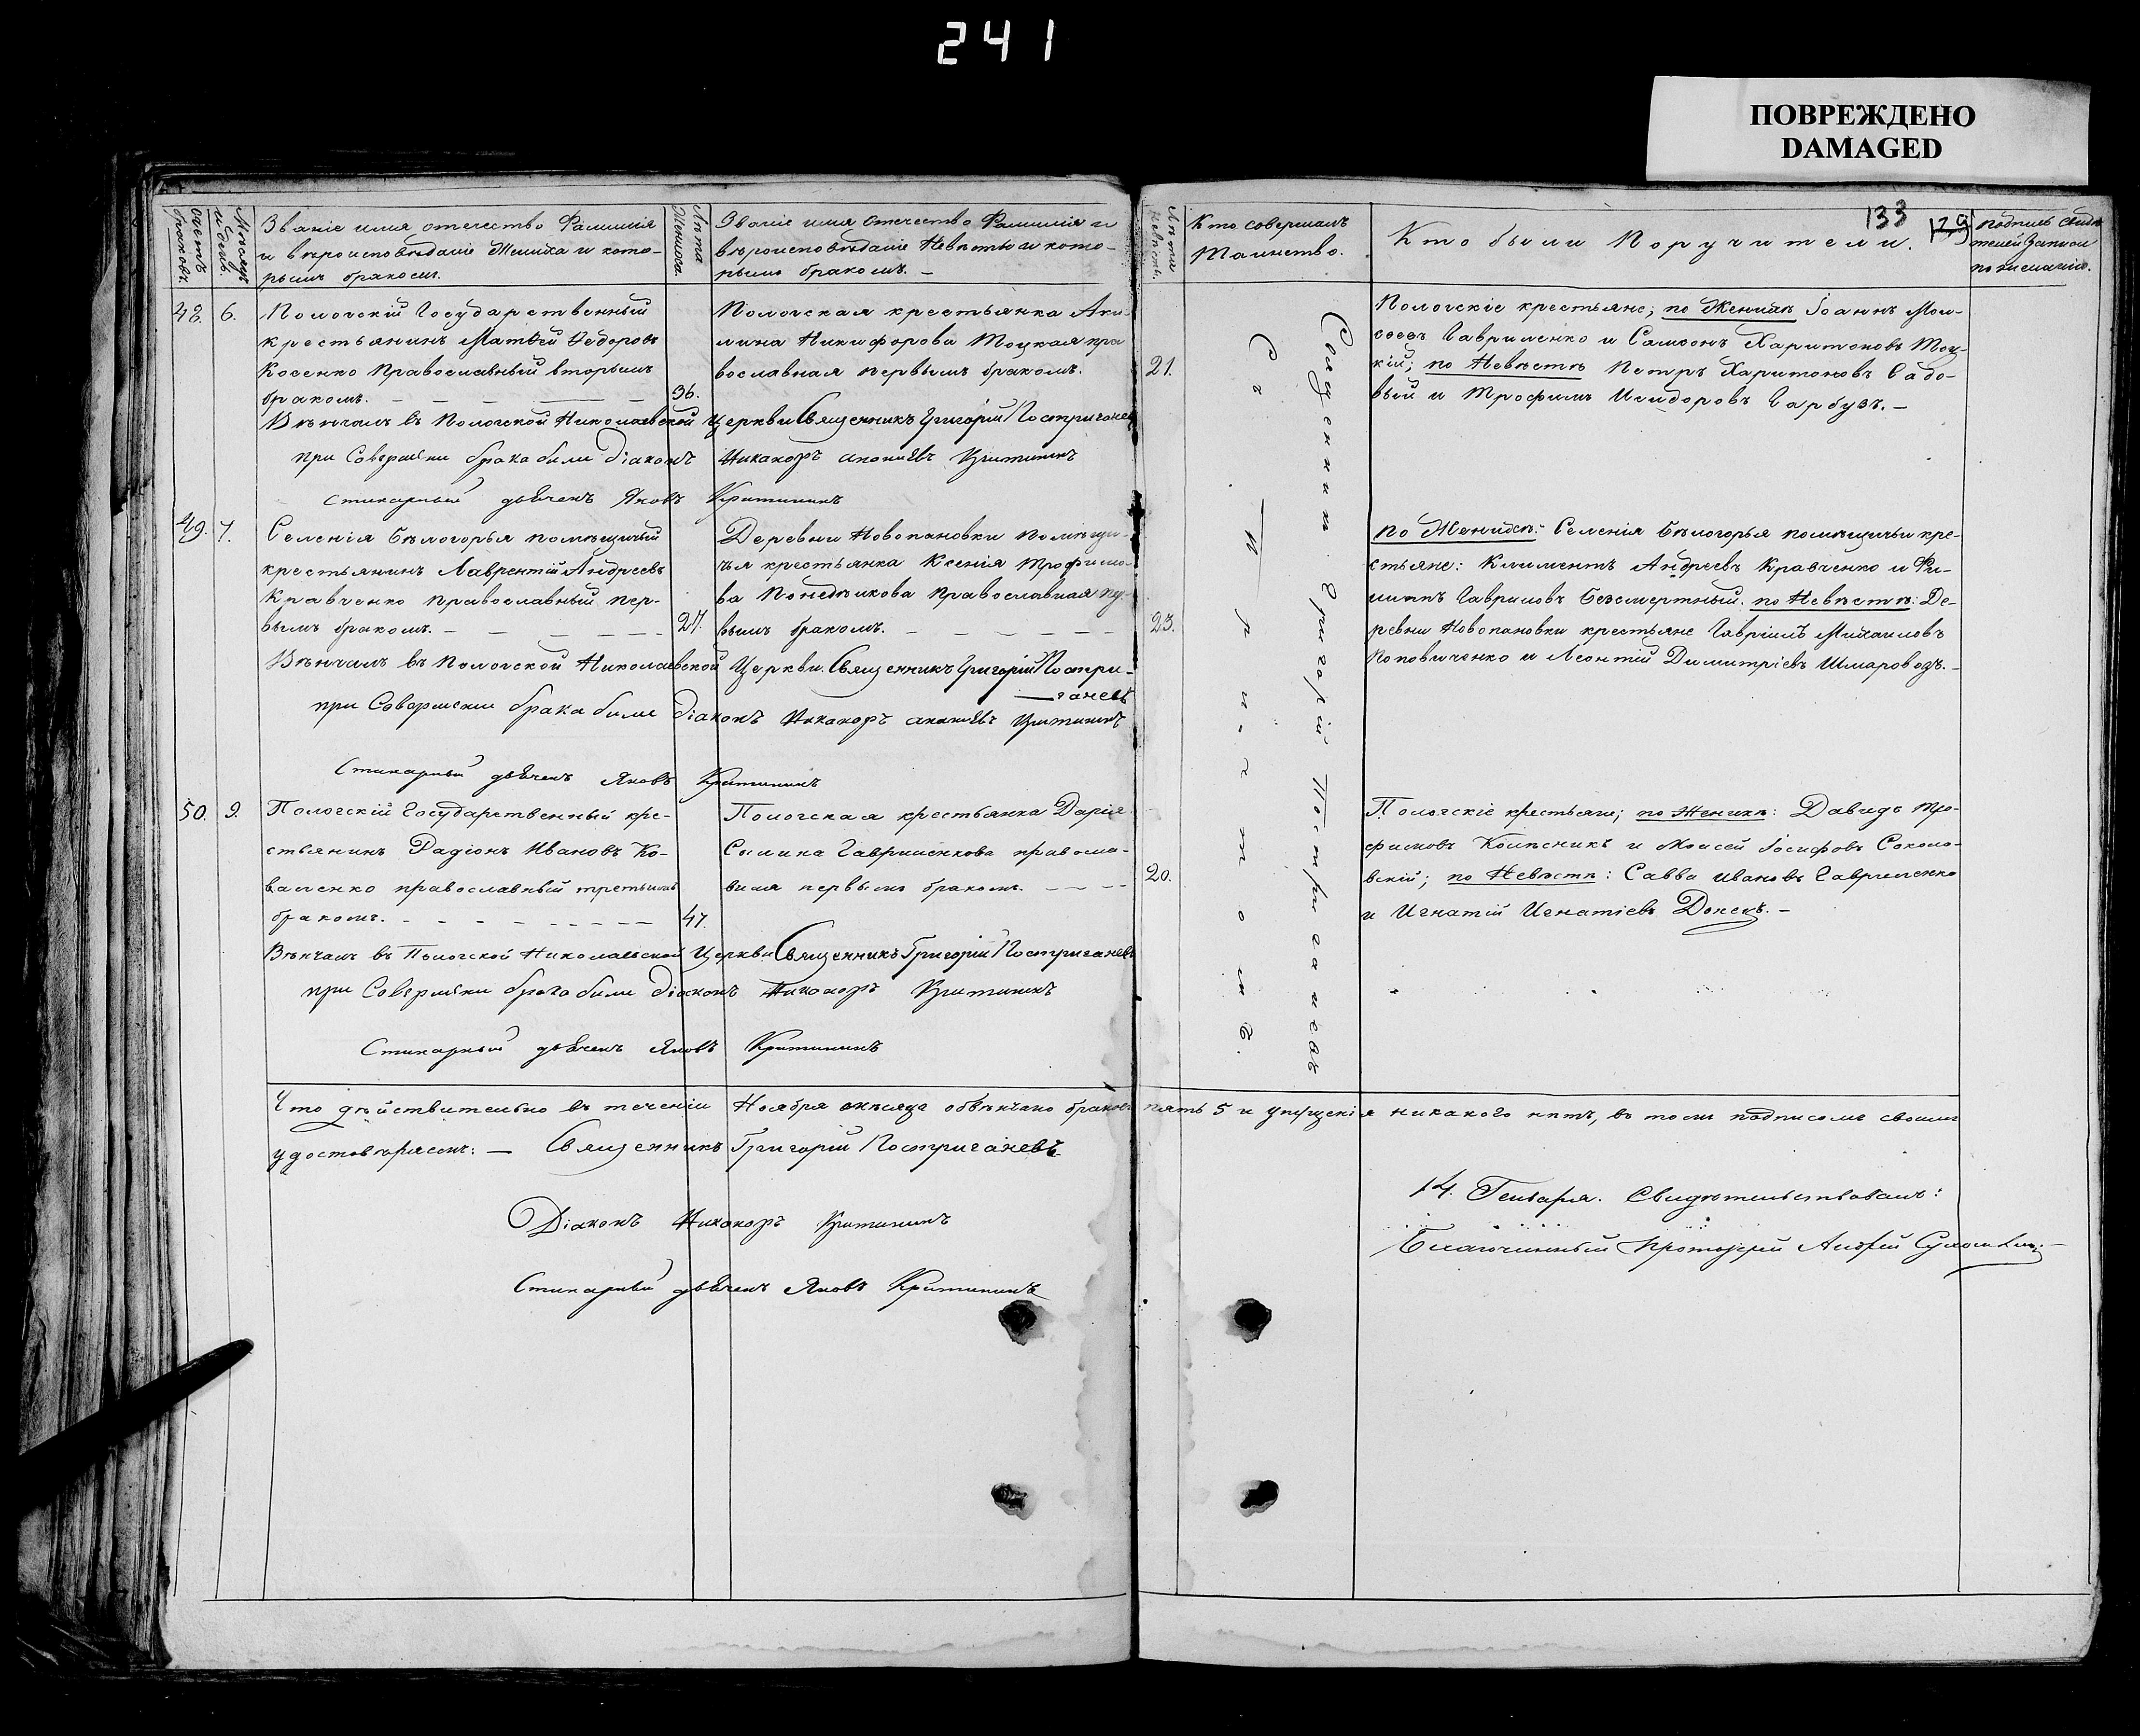 241
ПОВРЕЖДЕНО
DAMAGED
133
129
Счетъ браковъ.
Мѣсяцъ и день.
Званіе имя отечество Фамилія
и вѣроисповѣданіе Жениха и кото-
рымъ бракомъ.
Лѣта Жениха.
Званіе имя отечество Фамилія и
вѣроисповѣданіе Невѣсты и кото-
рымъ бракомъ. –
Лѣта Невѣсты.
Кто совершалъ
Таинство.
Кто были Поручители.
подпись свидѣ-
телей записи
по желанію.
48. 6.
Пологскій Государственный
крестьянинъ Матѳей Ѳедоровъ
Косенко Православный вторымъ
бракомъ. – – – – – 36.
Пологская крестьянка Аки-
лина Никифорова Тоцкая пра
вославная первымъ бракомъ.
21.
Пологскіе крестьяне; по Женихѣ Іоаннъ Мои-
сеевъ Гавриленко и Самсонъ Харитоновъ Тоц-
кій; по Невѣстѣ Петръ Харитоновъ Садо-
вый и Трофимъ Исидоровъ Гарбузъ. –
Вѣнчалъ въ Пологской Николаевской Церкви Священникъ Григорій Постригачевъ
при Совершеніи брака были діаконъ Никаноръ Критининъ
Стихарный дьячекъ Яковъ Критининъ
49. 7.
Селенія Бѣлогорья помѣщичый
крестьянинъ Лаврентій Андреевъ
Кравченко православный пер-
вымъ бракомъ. – – – – – 27.
Деревни Новопановки помѣщи-
чья крестьянка Ксенія Трофимо-
ва Понедѣлкова православная пе-
вымъ бракомъ. – – – – –
23.
по Женихѣ: Селенія Бѣлогорья помѣщичьи кре-
стьяне: Климентъ Андреевъ Кравченко и Фи-
липпъ Гавриловъ Безсмертный. по Невѣстѣ: Де-
ревни Новопановки крестьяне Гавріилъ Михаиловъ
Поповиченко и Леонтій Димитріевъ Шмаровозъ. –
Вѣнчалъ въ Пологской Николаевской Церкви. Священникъ Григорій Постри-
гачевъ
при Совершеніи брака были діаконъ Никаноръ Критининъ
Стихарный дьячекъ Яковъ Критининъ
50. 9.
Пологскій Государственный кре-
стьянинъ Радіонъ Ивановъ Ко-
валенко православный третьимъ
бракомъ. – – – – – – – 47.
Пологская крестьянка Дарія
Савина Гавриленкова правосла-
вная первымъ бракомъ. – – –
20.
Пологскіе крестьяне; по Женихѣ: Давидъ Тро-
фимовъ Колѣсникъ и Моисей Іосифовъ Соколо-
вскій; по Невѣстѣ: Савва Ивановъ Гавриленко
и Игнатій Игнатіевъ Донецъ. –
Священникъ Григорій Постригачевъ
Съ Причтомъ.
Вѣнчалъ въ Пологской Николаевской Церкви Священникъ Григорій Постригачевъ
при Совершеніи брака были діаконъ Никаноръ Критининъ
Стихарный дьячекъ Яковъ Критининъ
Что дѣйствительно въ теченіи Ноября мѣсяца обвѣнчано браковъ пять 5 и упущенія никакого нѣтъ, въ томъ подписомъ своимъ
удостовѣряемъ: – Священникъ Григорій Постригачевъ
Діаконъ Никаноръ Критининъ
Стихарный дьячекъ Яковъ Критининъ
14. Генваря. Свидѣтельствовалъ:
Благочинный Протоіерей Андрей